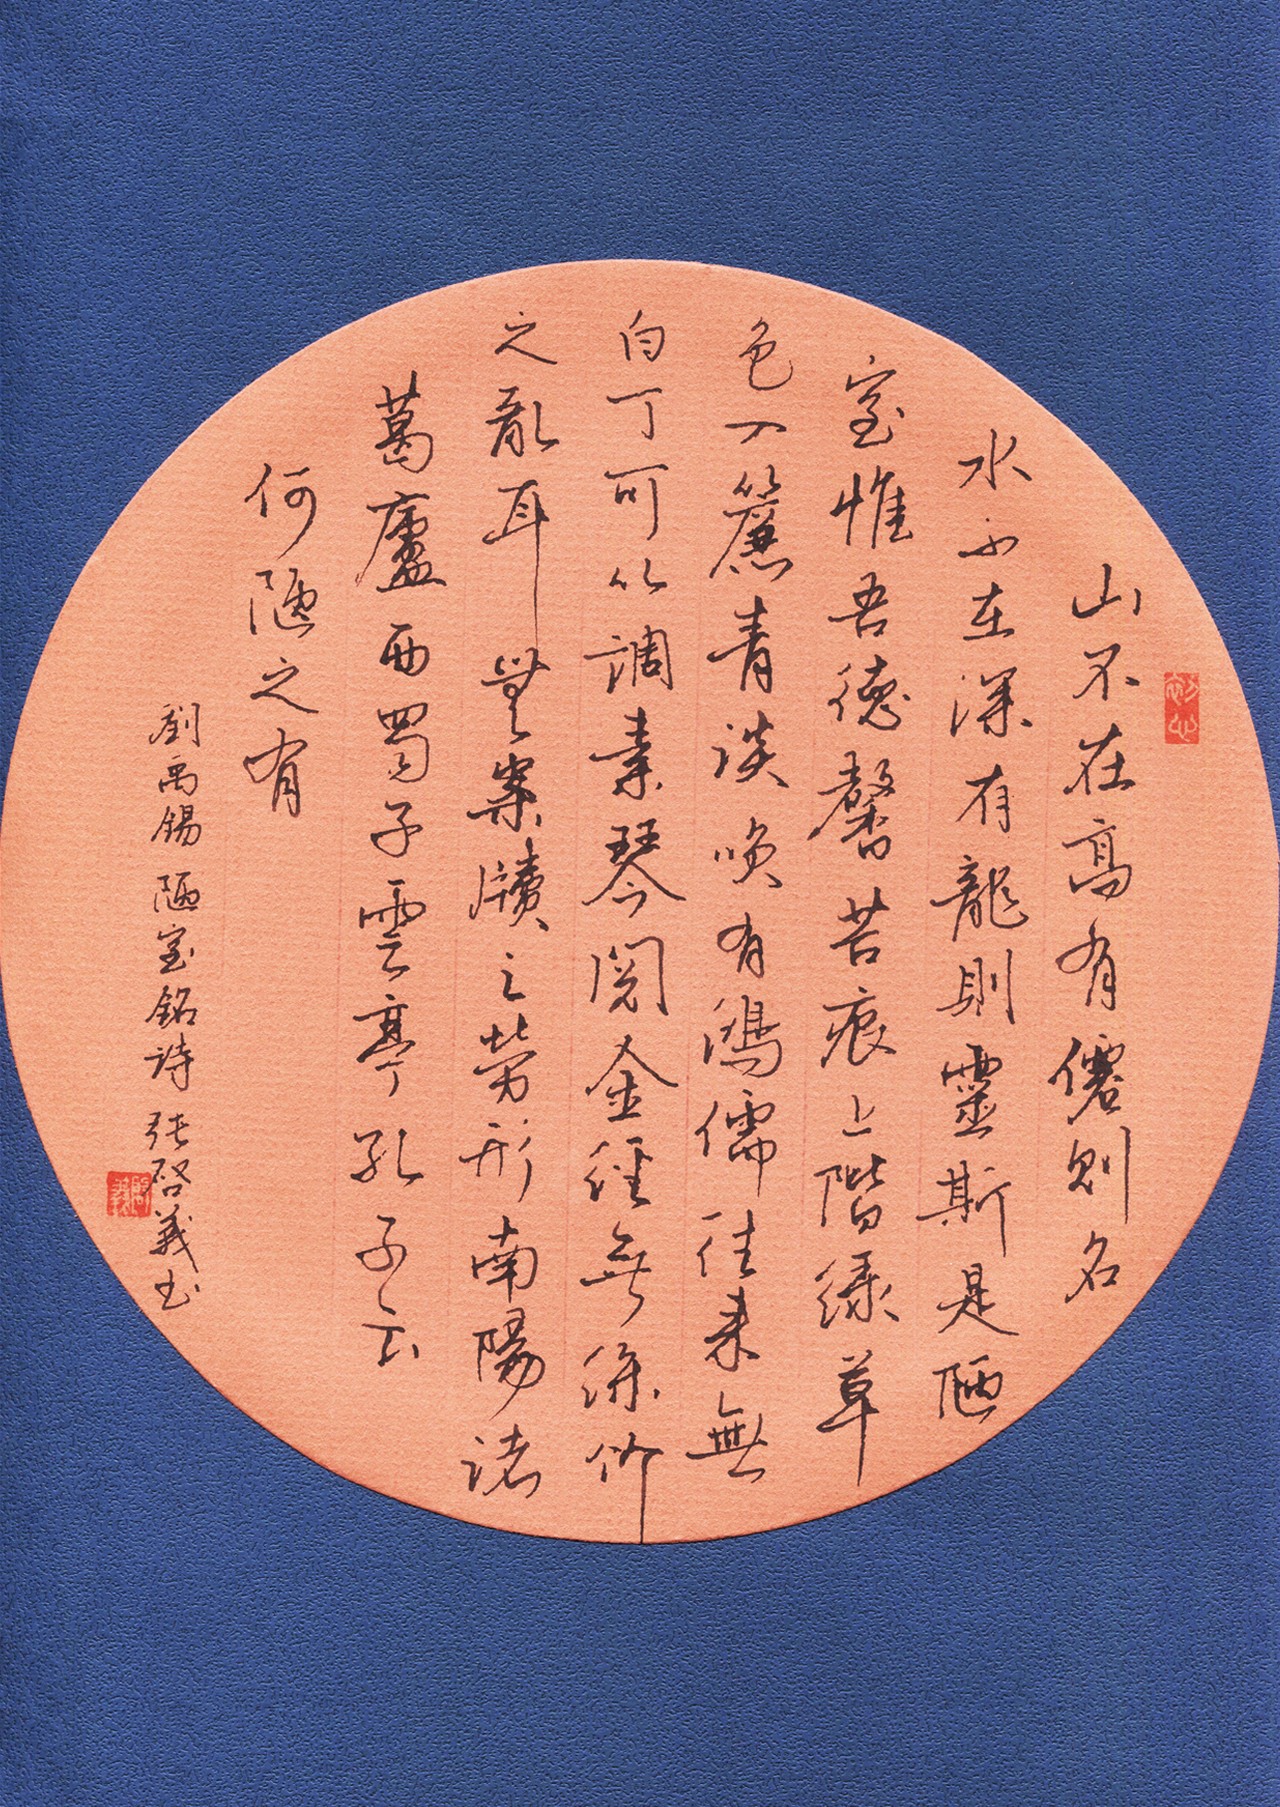 山不在高有僊則名
水不在深有龍則靈斯是陋
室惟吾德馨苔痕上階綠草
色入簾青談咲有鴻儒往来無
白丁可以調素琴閱金經無絲竹
之亂耳無案牘之勞形南陽諸
葛廬西蜀子雲亭孔子云
何陋之有
劉禹錫陋室銘詩 張啓義书
初心